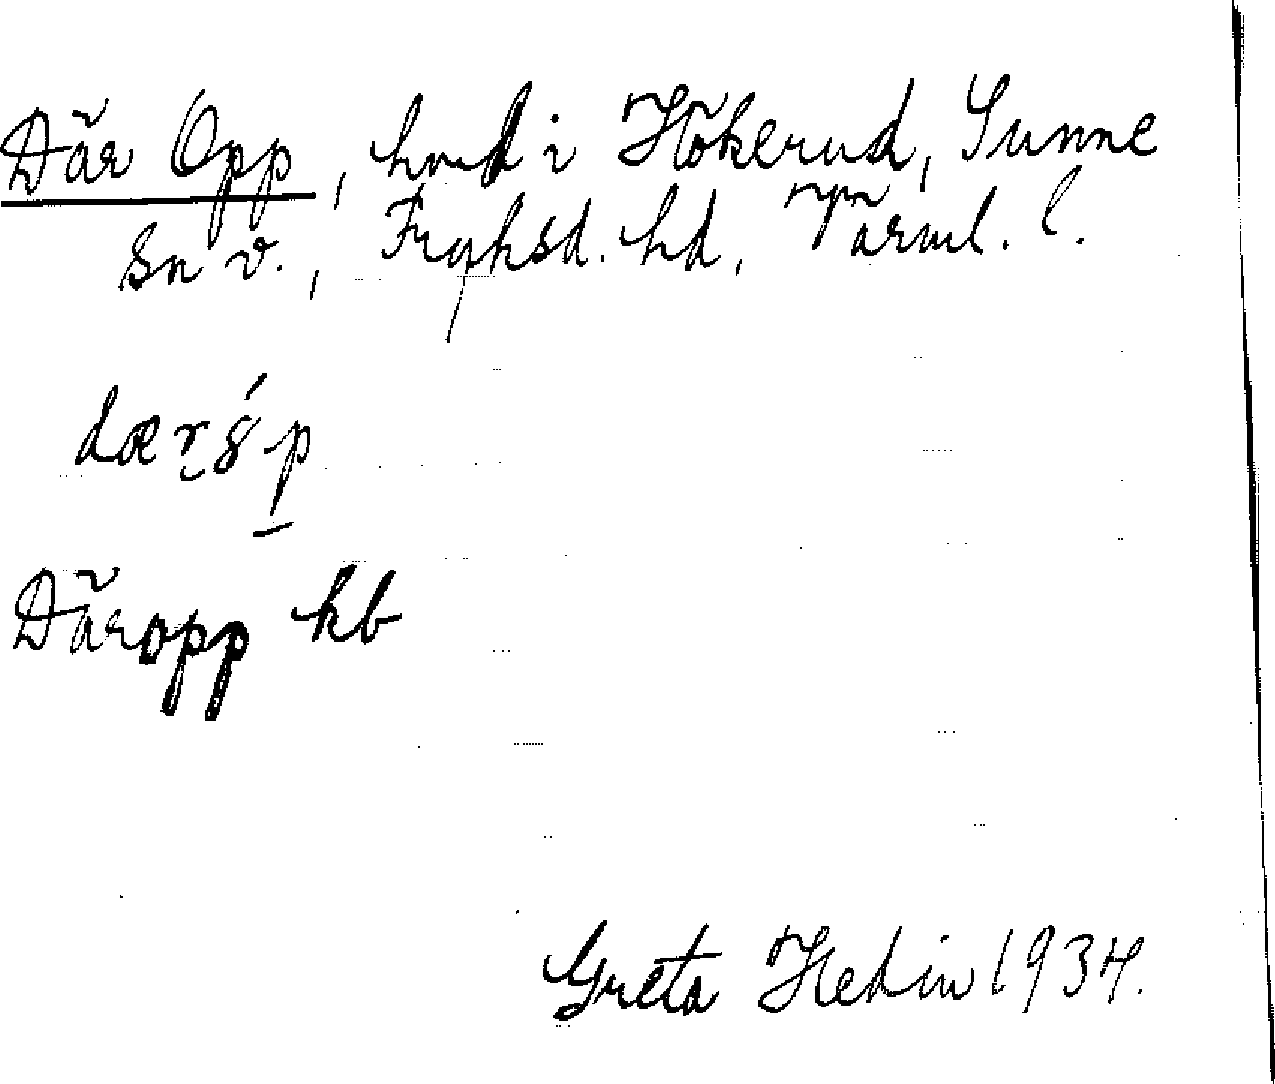 Där Opp, hmd i Hökerud, Sunne
sn v., Fryksd. hd, Värml. l.
dærǵp
Däropp kb
Greta Hedin 1934.